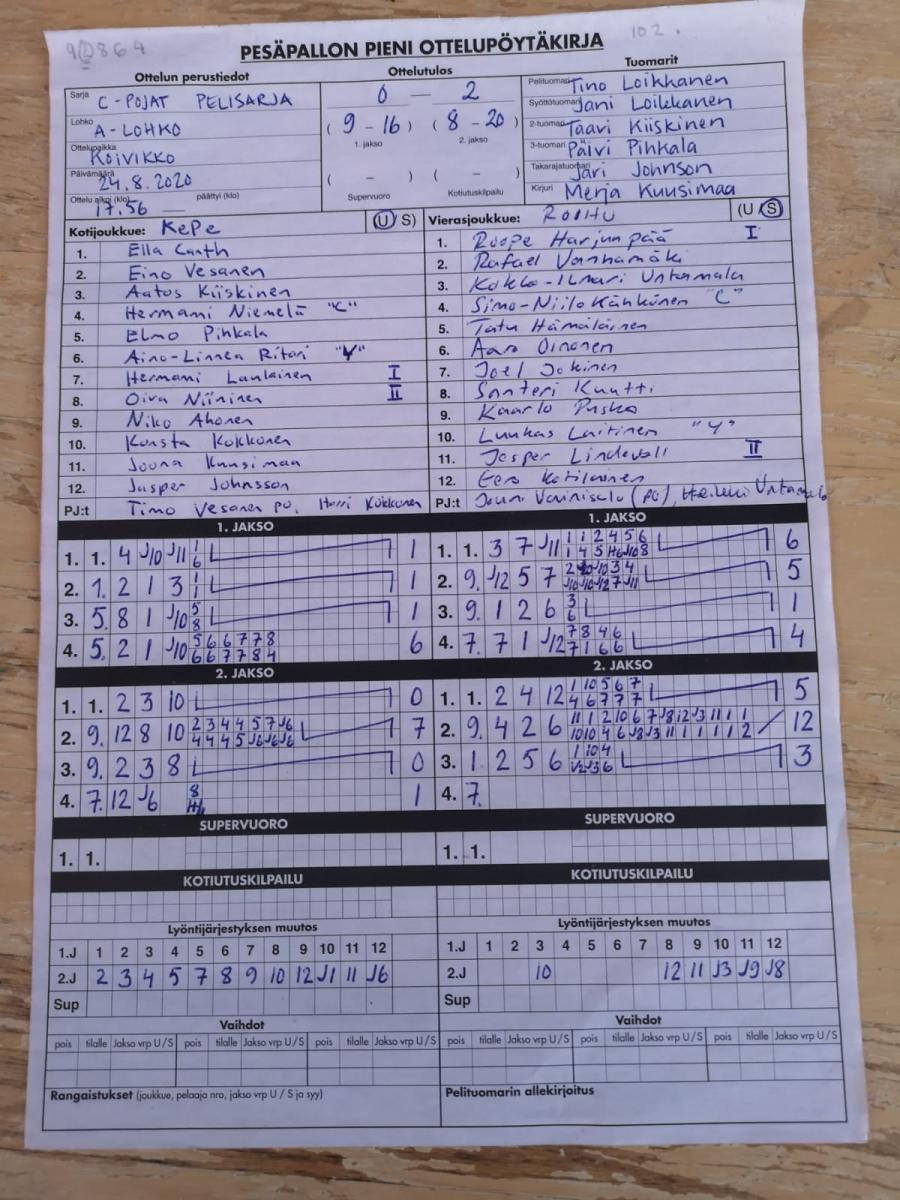 102.
PESÄPALLON PIENI OTTELUPÖYTÄKIRJA
Ottelun perustiedot
Sarja C-POJAT PELISARJA
Lohko A-LOHKO
Ottelupaikka KOIVIKKO
Päivämäärä 24.8.2020
Ottelu alkoi (klo) 17.56 päättyi (klo)
Ottelutulos
0 — 2
(9 - 16) (8 - 20)
1. jakso 2. jakso
( - ) ( - )
Supervuoro Kotiutuskilpailu
Tuomarit
Pelituomari Tino Loikkanen
Syöttötuomari Jani Loikkanen
2-tuomari Taavi Kiiskinen
3-tuomari Päivi Pihkala
Takarajatuomari Jari Johnson
Kirjuri Merja Kuusimaa
Kotijoukkue: KePe (U/S)
1. Ella Canth
2. Eino Vesanen
3. Aatos Kiiskinen
4. Hermanni Niemelä "C"
5. Elmo Pihkala
6. Aino-Linnea Ritari "V"
7. Hermanni Laulainen I
8. Oiva Niininen II
9. Niko Ahonen
10. Konsta Kokkonen
11. Joona Kuusimaa
12. Jasper Johnsson
PJ:t Timo Vesanen PO, Harri Kokkonen
Vierasjoukkue: ROIHU (U/S)
1. Roope Harjunpää I
2. Rafael Vanhamäki
3. Kokko-Ilmari Untamala
4. Simo-Niilo Kähkönen "C"
5. Tatu Hämäläinen
6. Aaro Oinonen
7. Joel Jokinen
8. Santeri Kuutti
9. Kaarlo Puska
10. Luukas Laitinen "Y"
11. Jesper Lindevall II
12. Eero Kotilainen
PJ:t Jouni Vainisalo (PO), Heikki Untamala
1. JAKSO
1. 1. 4 J10 J11 1
6 1
2. 1. 2 1 3 1
1 1
3. 5. 8 1 J10 5
8 1
4. 5. 2 1 J10 5 6 6 7 7 8
6 6 7 7 8 4 6
2. JAKSO
1. 1. 2 3 10 0
2. 9. 12 8 10 2 3 4 4 5 7 J6
4 4 4 5 J6 J6 J6 7
3. 9. 2 3 8 0
4. 7. 12 J6 8 1
SUPERVUORO
1. 1.
KOTIUTUSKILPAILU
1. JAKSO
1. 1. 3 7 J11 1 1 2 4 5 6
6
2. 9. J12 5 7
5
3. 9. 1 2 6 3
6 1
4. 7. 7 1 J12 7 8 4 6
7 1 6 6 4
2. JAKSO
1. 1. 2 4 12 1 10 5 6 7
4 6 7 7 7 5
2. 9. 4 2 6 11 1 2 10 6 7 J8 12 J3 11 1 1
10 10 4 6 J8 J3 11 1 1 1 1 2 12
3. 1. 2 5 6 1 10 4
J2 J3 6 3
4. 7.
SUPERVUORO
1. 1.
KOTIUTUSKILPAILU
Lyöntijärjestyksen muutos
1.J 1 2 3 4 5 6 7 8 9 10 11 12
2.J 2 3 4 5 7 8 9 10 12 J1 11 J6
Sup
Lyöntijärjestyksen muutos
1.J 1 2 3 4 5 6 7 8 9 10 11 12
2.J 10 12 11 J3 J9 J8
Sup
Vaihdot
pois tilalle Jakso vrp U/S pois tilalle Jakso vrp U/S pois tilalle Jakso vrp U/S
Vaihdot
pois tilalle Jakso vrp U/S pois tilalle Jakso vrp U/S pois tilalle Jakso vrp U/S
Rangaistukset (joukkue, pelaaja nro, jakso vrp U / S ja syy)
Pelituomarin allekirjoitus